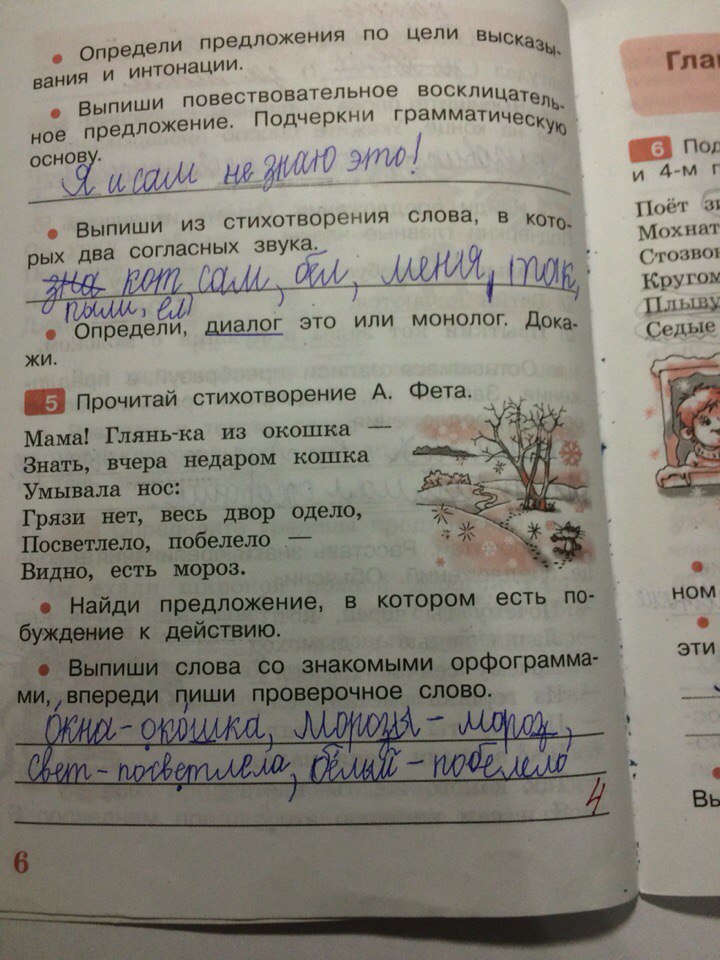 • Определи предложения по цели высказы-
вания и интонации.
• Выпиши повествовательное восклицатель-
ное предложение. Подчеркни грамматическую
основу.
Я и сам не знаю это!
• Выпиши из стихотворения слова, в кото-
рых два согласных звука.
зна кот, сам, бел, меня, так,
пыли, ел
• Определи, диалог это или монолог. Дока-
жи.
5 Прочитай стихотворение А. Фета.
Мама! Глянь-ка из окошка —
Знать, вчера недаром кошка
Умывала нос:
Грязи нет, весь двор одело,
Посветлело, побелело —
Видно, есть мороз.
• Найди предложение, в котором есть по-
буждение к действию.
• Выпиши слова со знакомыми орфограмма-
ми, впереди пиши проверочное слово.
окна - окошка, морозы - мороз,
свет - посветлела, белый - побелело
4
6
Гла
6 Под
и 4-м
Поёт
Мохнат
Стозвон
Кругом
Плыву
Седые
•
ном
•
эти
•
Вы